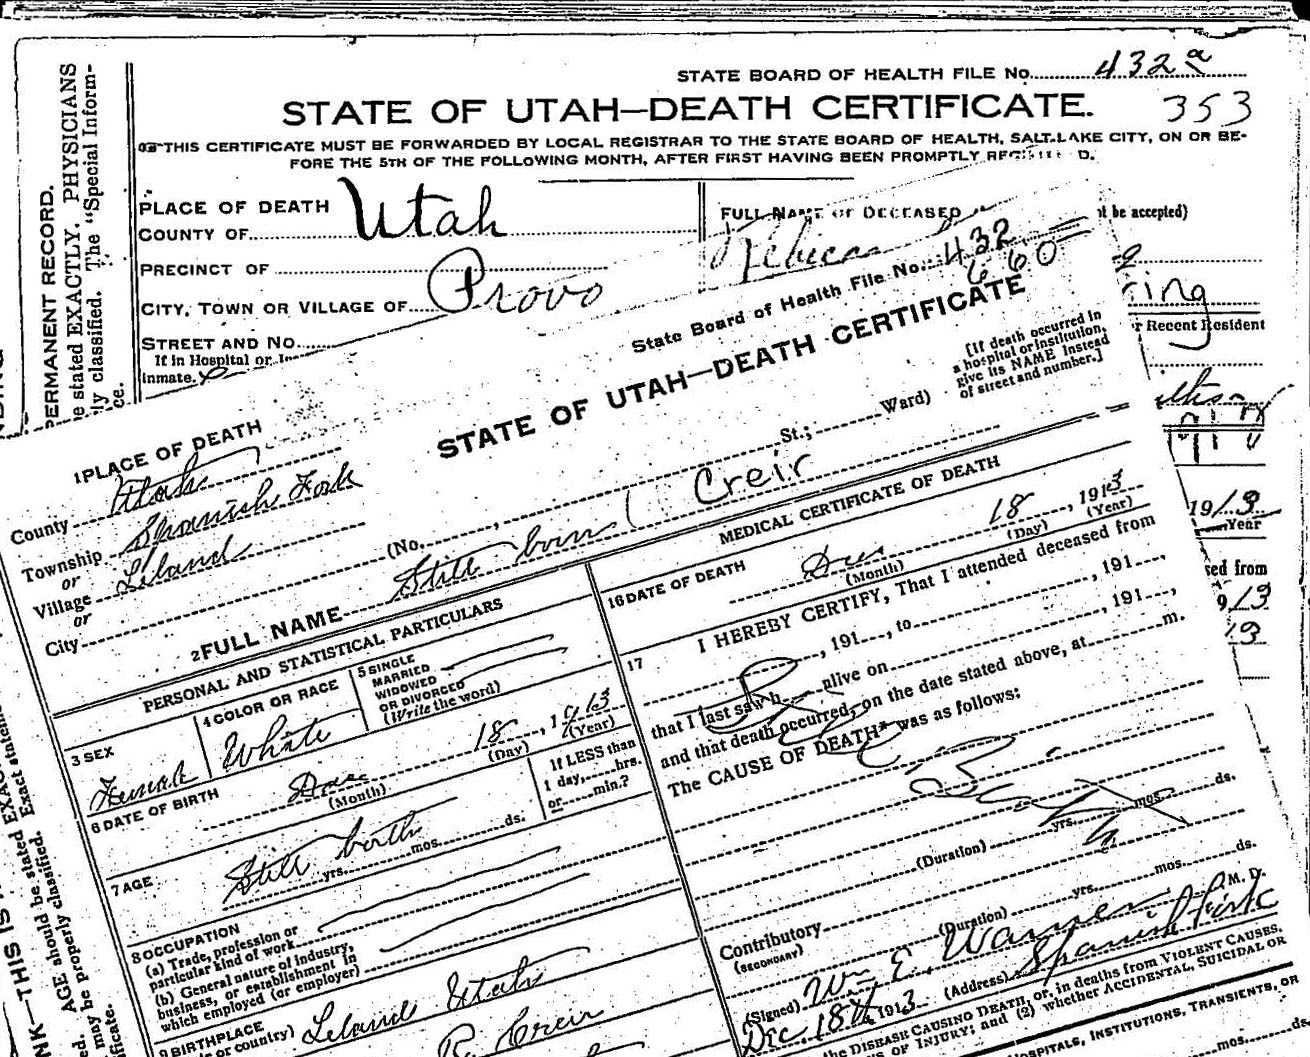 STATE BOARD OF HEALTH FILE No. 432 a
STATE OF UTAH—DEATH CERTIFICATE. 353
THIS CERTIFICATE MUST BE FORWARDED BY LOCAL REGISTRAR TO THE STATE BOARD OF HEALTH, SALT LAKE CITY, ON OR BE-
FORE THE 5TH OF THE FOLLOWING MONTH, AFTER FIRST HAVING BEEN PROMPTLY
PLACE OF DEATH
COUNTY OF Utah
PRECINCT OF
CITY, TOWN OR VILLAGE OF Provo
STREET AND NO.
If in Hospital or
inmate.
FULL NAME OF DECEASED
t be accepted)
ring
r Recent Resident
1913
Year
sed from
9 13
13
PERMANENT RECORD.
e stated EXACTLY. PHYSICIANS
ly classified. The "Special Inform-
ce.
State Board of Health File No. 432
660
STATE OF UTAH—DEATH CERTIFICATE
1 PLACE OF DEATH
County Utah
Township Spanish Fork
or
Village Leland
or
City
(No. St.; Ward)
[If death occurred in
a hospital or institution,
give its NAME instead
of street and number.]
2 FULL NAME Still born ( Creir
PERSONAL AND STATISTICAL PARTICULARS
3 SEX
Female
4 COLOR OR RACE
White
5 SINGLE
MARRIED
WIDOWED
OR DIVORCED
(Write the word)
6 DATE OF BIRTH
Dec 18, 1913
(Month) (Day) (Year)
7 AGE
Still birth
yrs. mos. ds.
If LESS than
1 day, hrs.
or min.?
8 OCCUPATION
(a) Trade, profession or
particular kind of work
(b) General nature of industry,
business, or establishment in
which employed (or employer)
9 BIRTHPLACE
or country) Leland Utah
MEDICAL CERTIFICATE OF DEATH
16 DATE OF DEATH
Dec 18, 1913
(Month) (Day) (Year)
17 I HEREBY CERTIFY, That I attended deceased from
, 191 , to , 191 ,
that I last saw h alive on , 191 ,
and that death occurred, on the date stated above, at m.
The CAUSE OF DEATH* was as follows:
(Duration) yrs. mos. ds.
Contributory
(SECONDARY)
(Duration) yrs. mos. ds.
(Signed) Wm E. Warner M. D.
Dec 18th, 1913 (Address) Spanish Fork
the DISEASE CAUSING DEATH, or, in deaths from VIOLENT CAUSES,
S OF INJURY; and (2) whether ACCIDENTAL, SUICIDAL OR
HOSPITALS, INSTITUTIONS, TRANSIENTS, OR
mos. ds.
NK—THIS IS
ed. AGE should be stated EXAC
may be properly classified. Exact statement
rtificate.